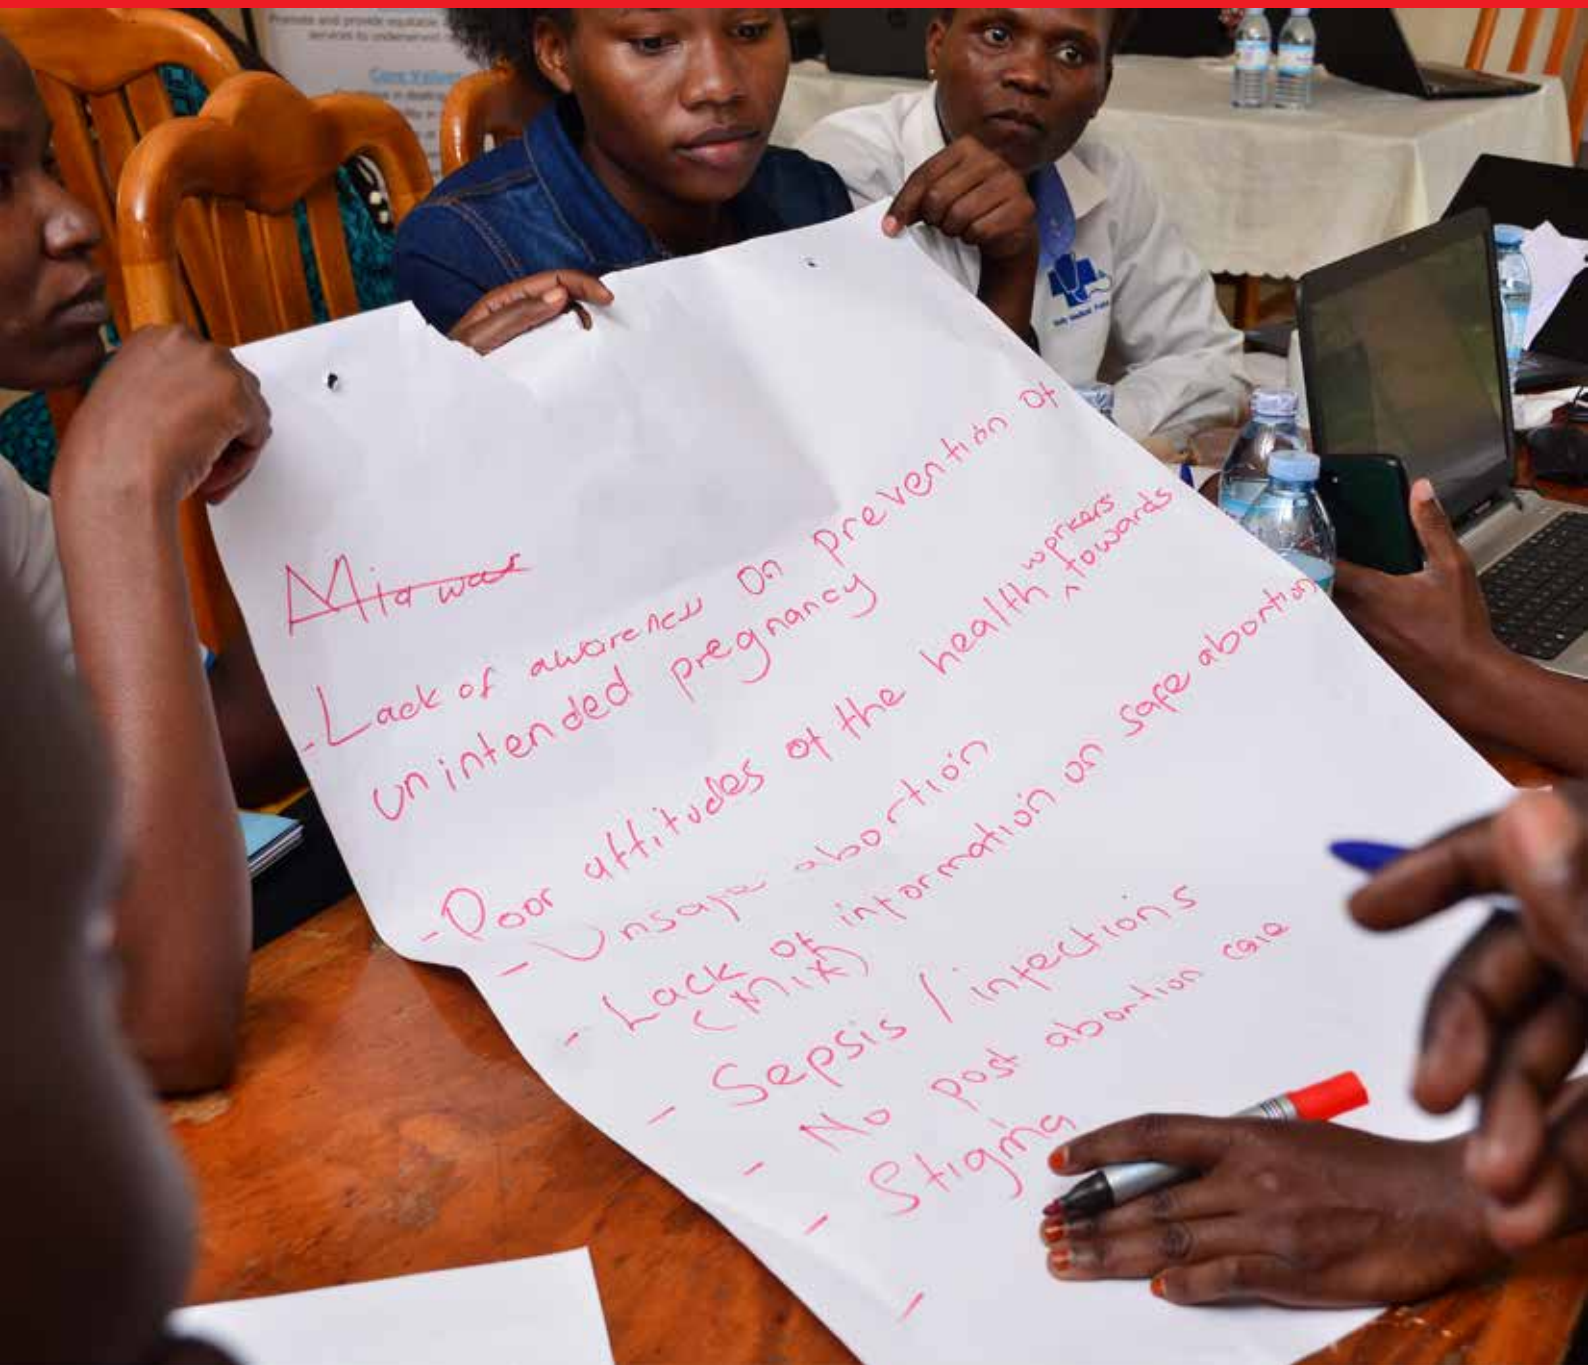 Promote and provide equitable
services to underserved
Core Values
- Lack of awareness on prevention of
unintended pregnancy
- Poor attitudes of the health workers towards
- Unsafe abortion
- Lack of information on safe abortion
(Mix)
- Sepsis / infections
- No post abortion care
- Stigma
-